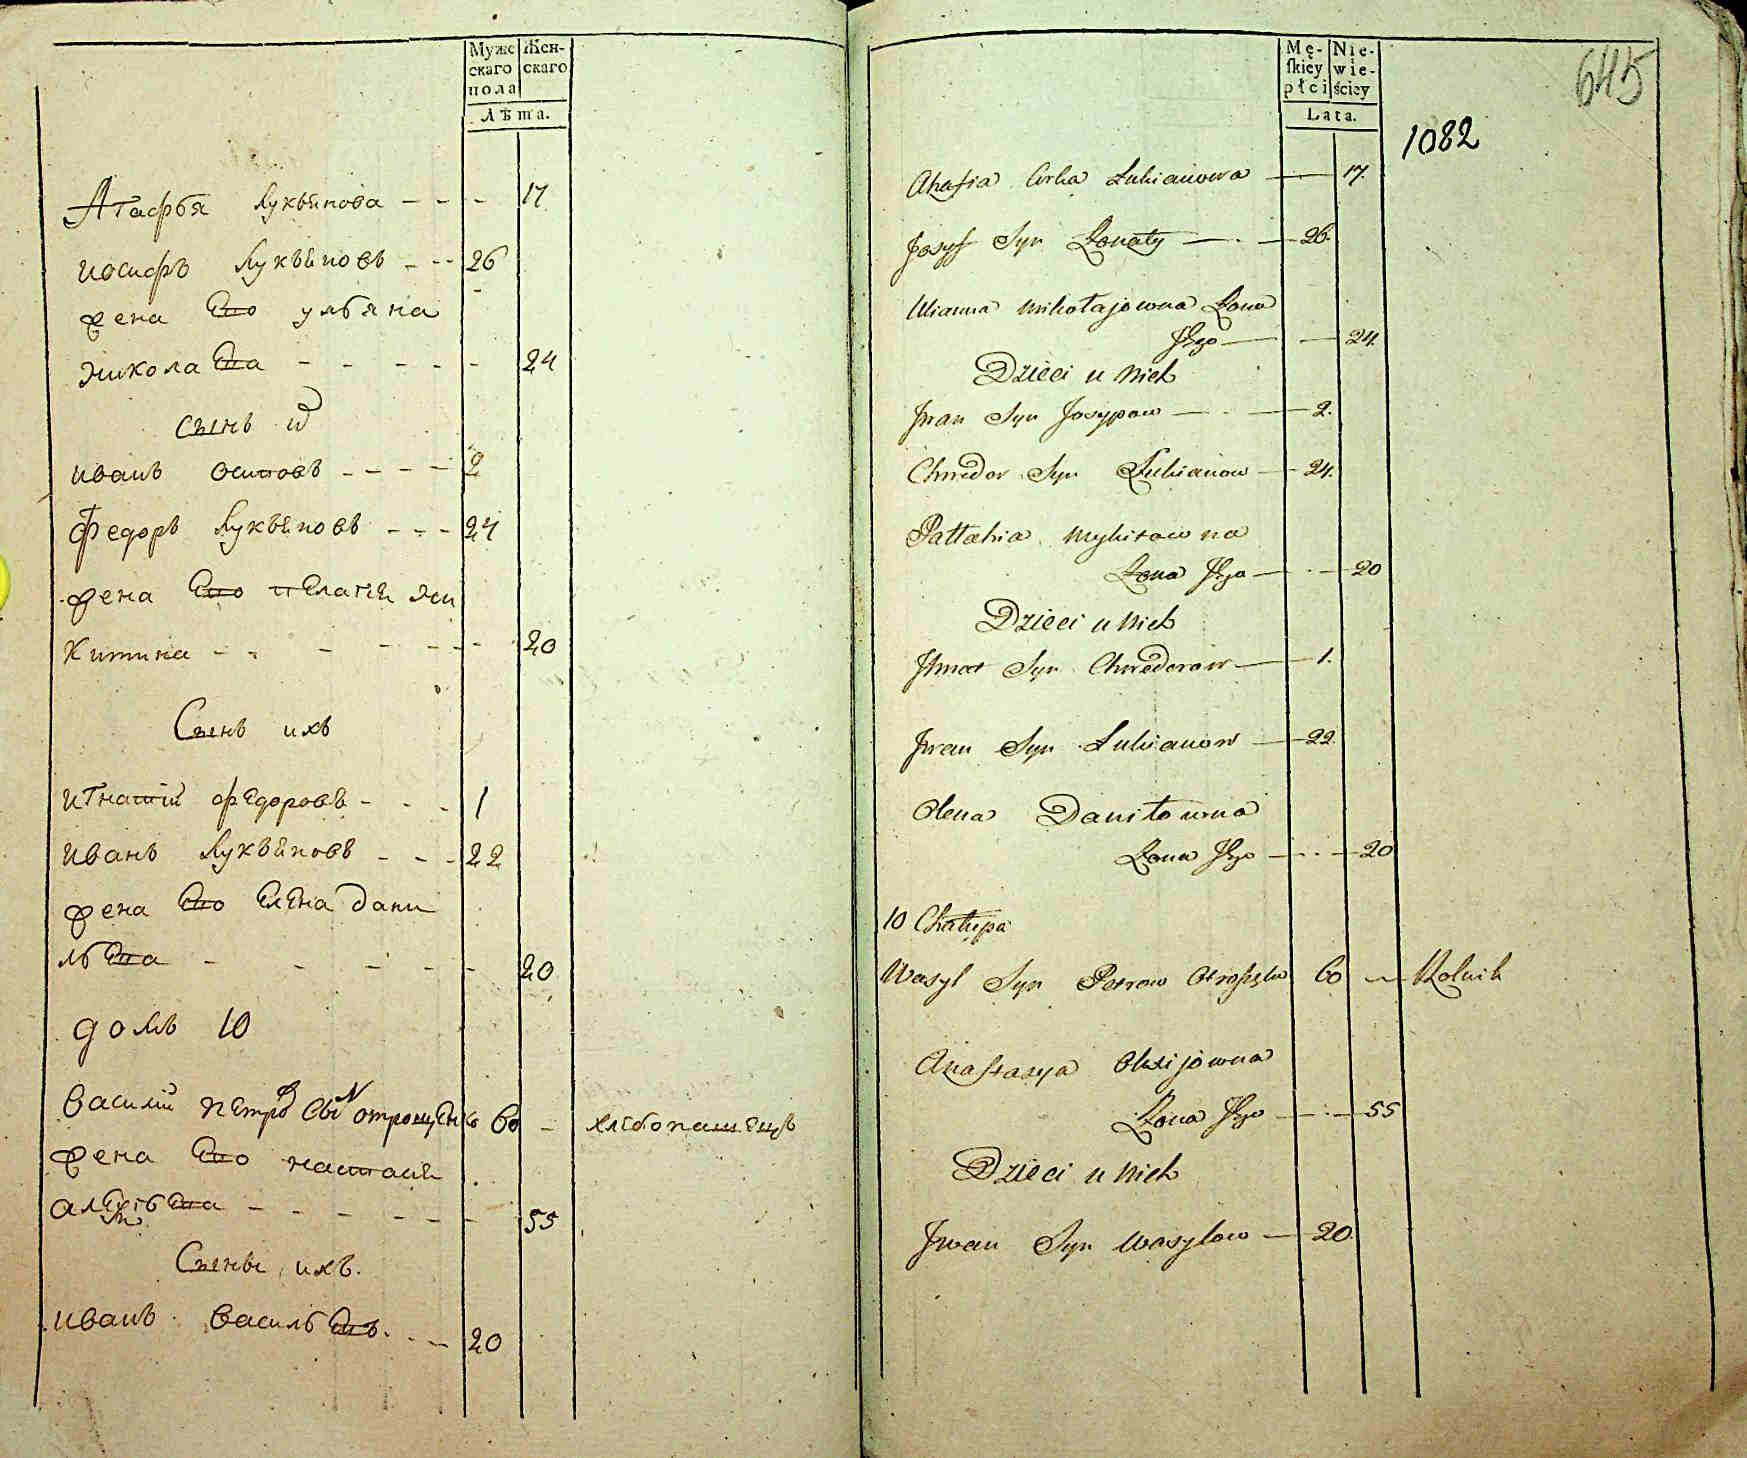 Муже Жен-
скаго скаго
пола
Лѣта.
Агафья Лукьянова - - - 17
Иосифъ Лукьяновъ - - - 26
жена Его ульяна
никола Ева - - - - - 24
сынъ их
иванъ осиповъ - - - - 2
Федоръ Лукьяновъ - - - 24
жена Его пелагея ни
китина - - - - - - 20
Сынъ ихъ
игнатий федоровъ - - - 1
иванъ Лукьяновъ - - - 22
жена Его Елена дани
льЕва - - - - - 20
домъ 10
Василий петров сын отрощенко 60 - хлебопашецъ
жена Его настасья
алексѣЕва - - - - - - 55
Сыны ихъ.
иванъ васильЕвъ. - - 20
645
Mę- Nie-
skiey wie-
płci ściey
Lata.
1082
Ahafia Corka Lukianowa — 17.
Josyf Syn Żonaty — 26.
Ulianna Mikołajowna Żona
Jego — 24.
Dzieci u Nich
Jwan Syn Josypow — 2.
Chwedor Syn Lukianow — 24.
Pałłahia Mykitowna
Żona Jego — 20
Dzieci u Nich
Jhnat Syn Chwedorow — 1.
Jwan Syn Lukianow — 22.
Olena Daniłowna
Żona Jego — 20
10 Chałupa
Wasyl Syn Petrow Otroszko 60 — Rolnik
Anastasya Olexijowna
Żona Jego — 55
Dzieci u Nich
Jwan Syn Wasylow — 20.